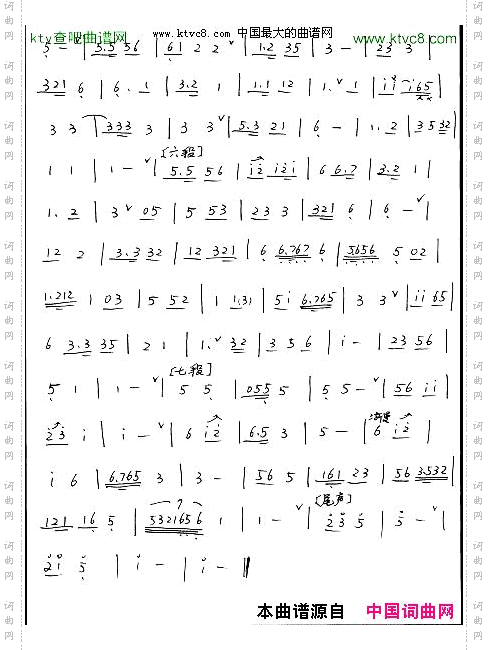 kty查吧曲谱网 www.ktvc8.com 中国最大的曲谱网 www.ktvc8.com
5 - | 5.5 56 | 61 2 2 ˅ | 1.2 35 | 3 - | 23 3 |
321 6 | 6. 1 | 3.2 1 | 1.1 12 | 1.˅ 1 | ii i65 |
3 3 | 333 3 | 3 3 ˅ | 5.3 21 | 6 - | 1. 2 | 3532 |
[六段]
1 1 | 1 - ˅ | 5.5 56 | i2 i2i | 66 6.7 | 3.2 1 |
1. 2 | 3 ˅ 05 | 5 53 | 23 3 | 321 6 | 6 - ˅ |
12 2 | 3.3 32 | 12 321 | 6 6.767 6 | 5656 5 02 |
1.212 1 03 | 5 52 | 1 1(3) | 5i 6.765 | 3 3 ˅ | ii 65 |
6 3.3 35 | 2 1 | 1.˅ 32 | 3 5 6 | i - | 23 56 |
[七段]
5 1 | 1 - ˅ | 5 5 | 055 5 | 5 5 - ˅ | 56 ii |
23 i | i - ˅ | 6 i2 | 6.5 3 | 5 - | 6 i2 |
i 6 | 6.765 3 | 3 - | 56 5 | 161 23 | 56 3.532 |
[尾声]
121 16 5 | 5321656 1 | 1 - ˅ | 23 5 | 5 - ˅ |
2i 5 | i - | i - ‖
本曲谱源自 中国词曲网
词曲网